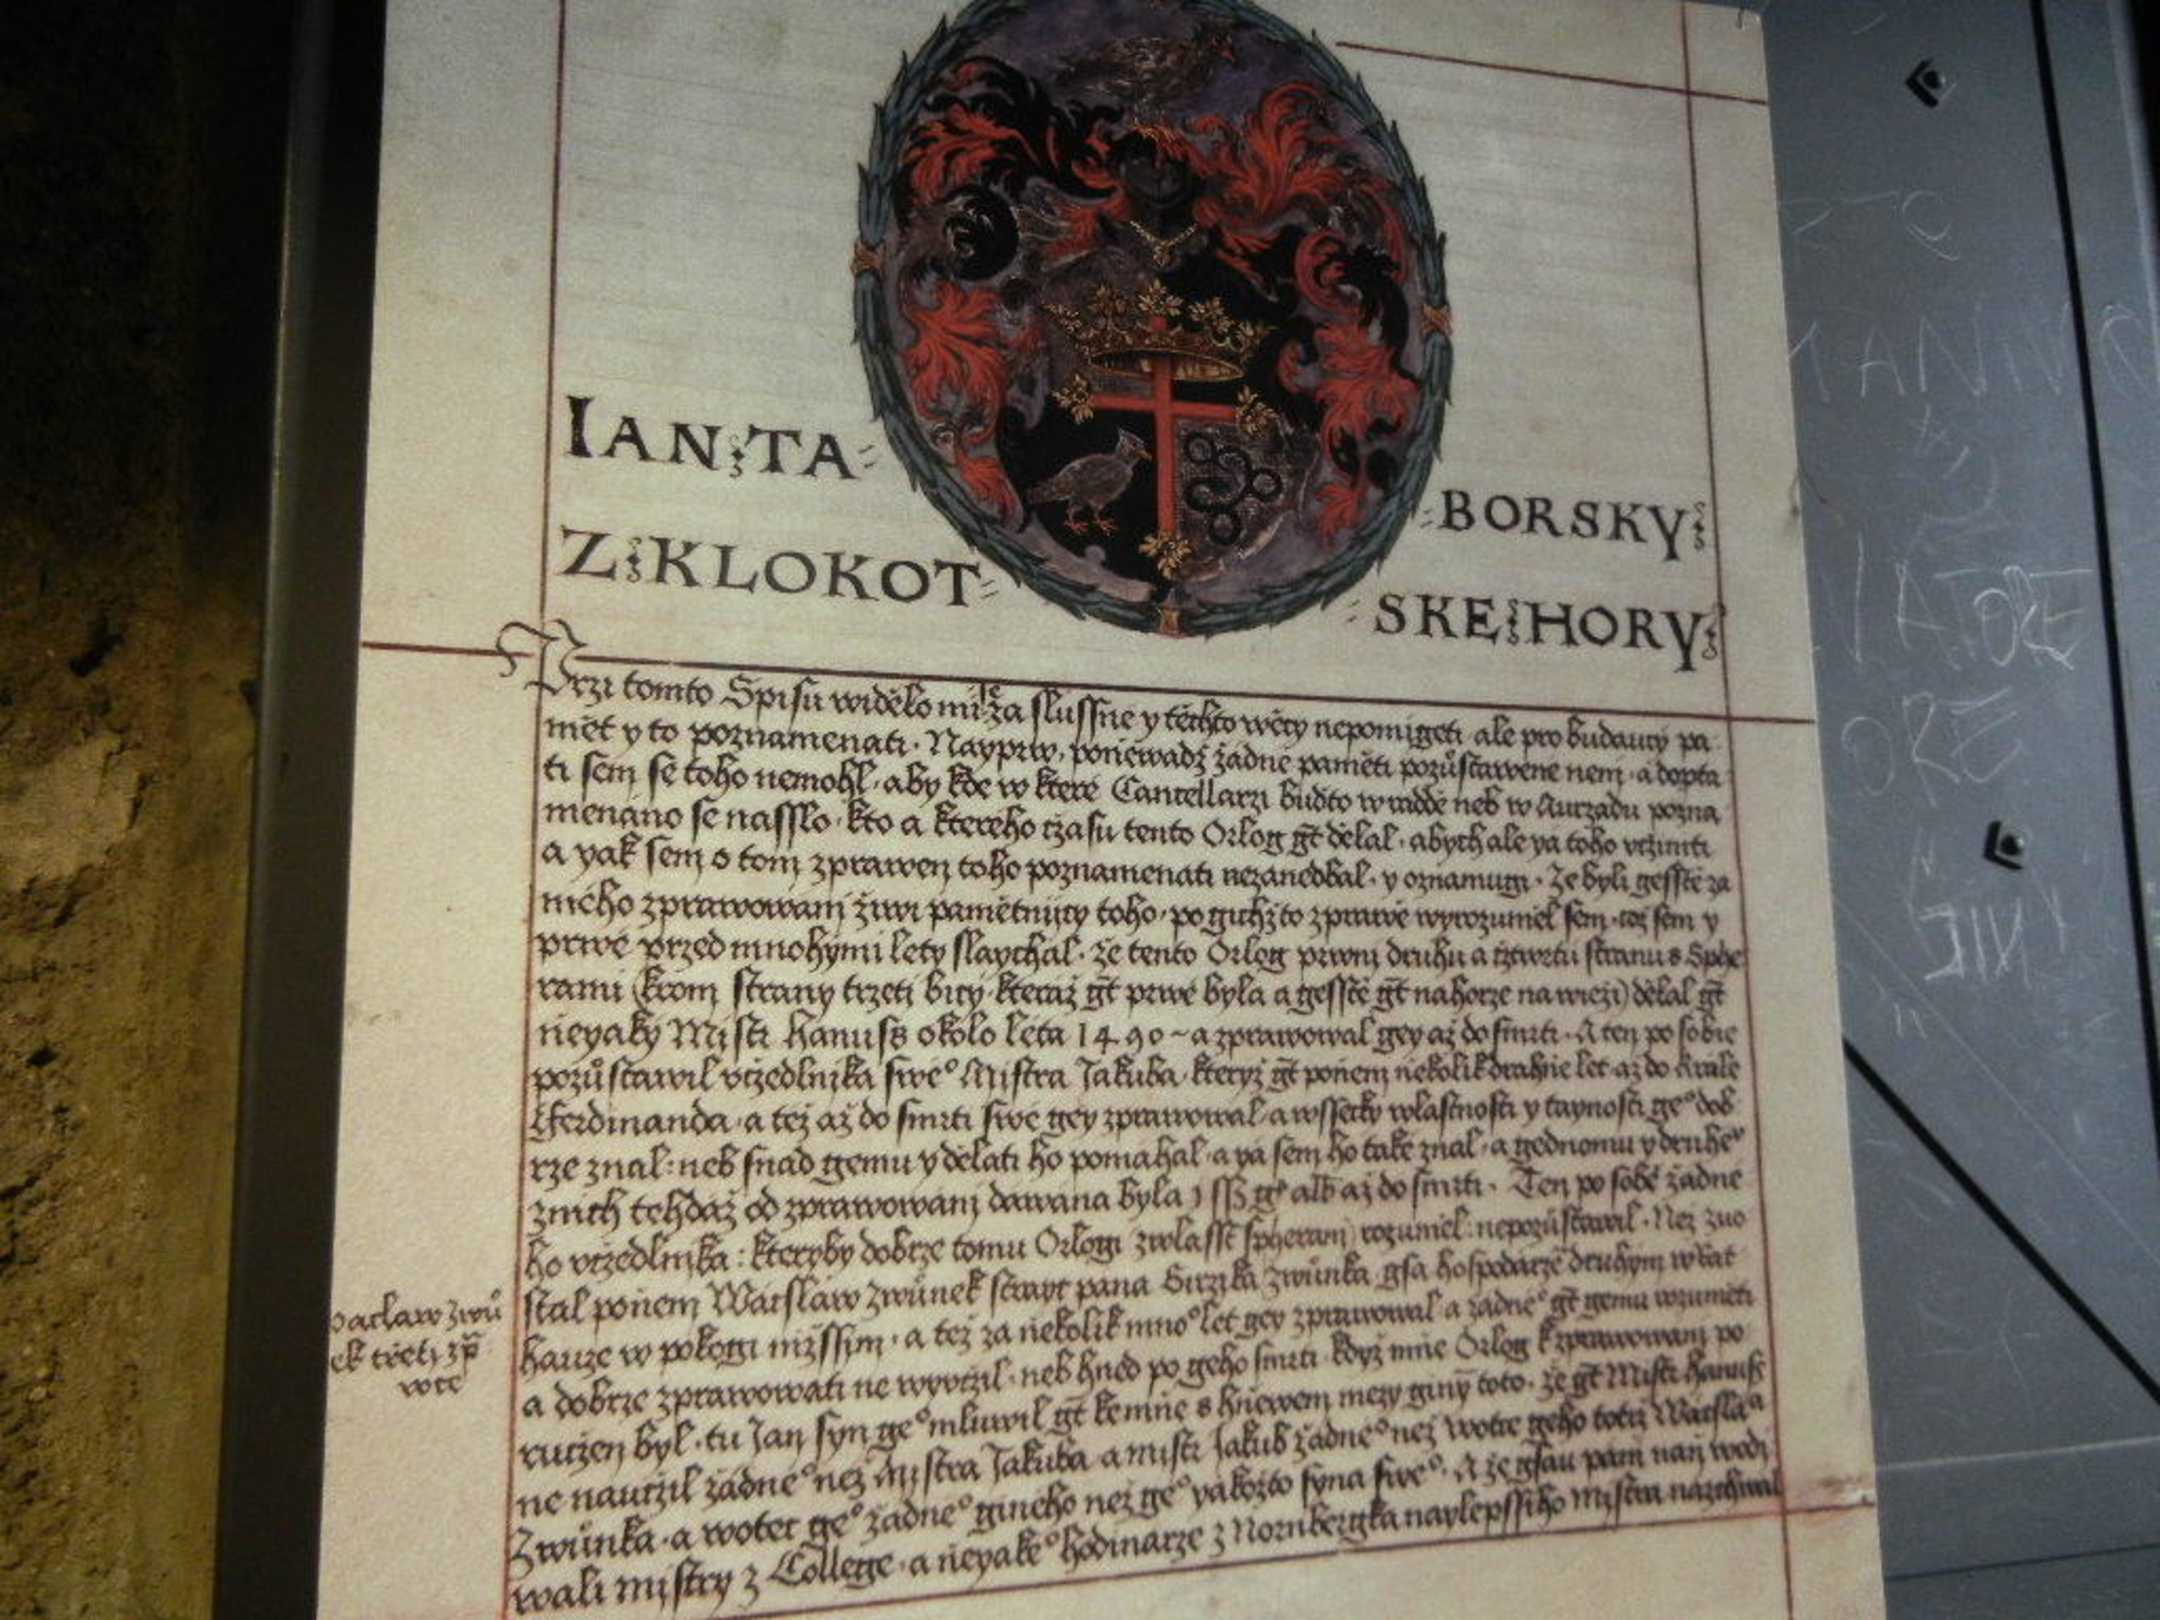 IAN TA=
=BORSKY
Z KLOKOT=
=SKE HORY
Przi tomto Spisu widělo mi se za slussne y těchto wěcy nepomigeti ale pro budaucy pa
mět y to poznamenati. Nayprw, poniewadž žadne paměti pozůstawene neni, a dopta
ti sem se toho nemohl, aby kde w ktere Cantellarzi budto w raddě neb w Aurzadu pozna
menano se nasslo, kto a ktereho czasu tento Orlog gt dělal, abych ale ya toho vcziniti
a yak sem o tom zprawen toho poznamenati nezanedbal, y oznamugi, Že byli gesstě za
meho zprawowani žiwi pamětnijcy toho, po gichžto zprawě wyrozuměl sem, což sem y
prwe przed mnohymi lety slaychal, že tento Orlog prwni druhu a cztwrtu stranu s Sphe
rami (krom strany trzeti bicy, kteraž gt prwe byla a gesstě gt nahorze na wieži) dělal gt
nieyaky Mistr Hanuss okolo leta 1490 ~ a zprawowal gey až do smrti. A ten po sobie
pozůstawil vrzedlnika sweº Mistra Jakuba, kteryž gt poniem niekolik drahnie let, až do krale
Ferdinanda, a tež až do smrti swe gey zprawowal, a wssecky wlastnosti y taynosti geº dob
rze znal: neb snad gemu y dělati ho pomahal, a ya sem ho take znal, a gednomu y druheº
z nich tehdaž od zprawowani dawana byla 1 ss gr alb až do smrti. Ten po sobě žadne
ho vrzedlnika: kteryby dobrze tomu Orlogi zwlasst spheram rozuměl: nepozůstawil. Než zuo
stal poniem Waclaw Zwůnek stryc pana Girzika Zwůnka, gsa hospodarzě druhym w kat
hauze w pokogi nižssim, a tež za niekolik mnoº let gey zprawowal, a žadneº gt gemu wzuměti
a dobrze zprawowati ne wyvczil, neb hned po geho smrti, když mnie Orlog k zprawowani po
ruczen byl, tu Jan syn geº mluwil gt ke mnie s hniewem mezy ginym toto, že gt Mistr Hanuss
ne nauczil žadneº než Mistra Jakuba, a mistr Jakub žadneº než wotce geho totiž Waclawa
Zwůnka, a wotec geº žadneº gineho než geº yakožto syna sweº. A že gsau pani naň wodi
wali mistry z College, a neyakeº hodinarze z Nornbergka naylepssiho mistra nazchwal
waclaw zwů
ek třeti zp
wce